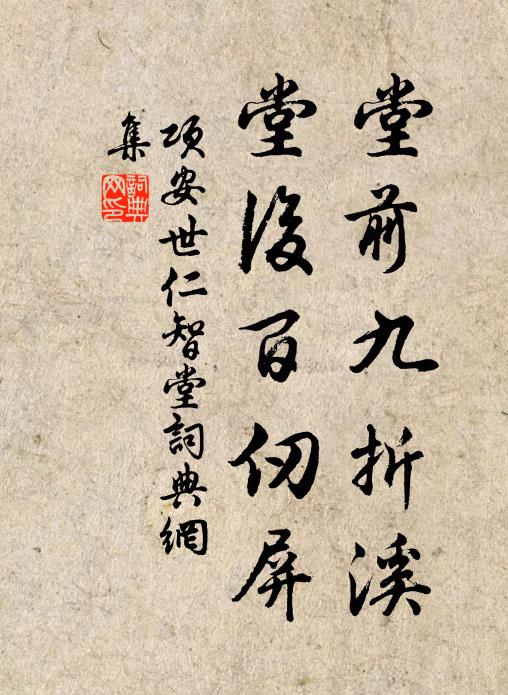 堂前九折溪
堂後百仞屏
項安世仁智堂詞典網
集
詞典網印